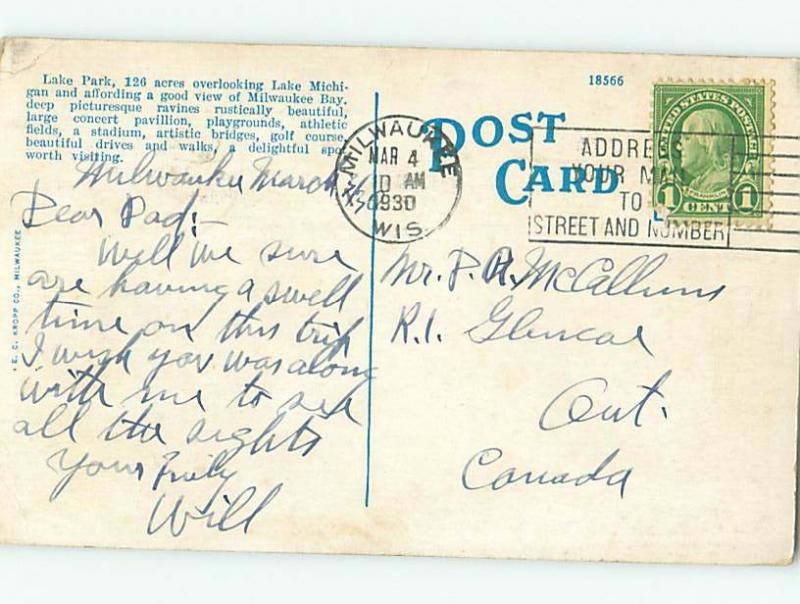 Lake Park, 126 acres overlooking Lake Michi-
gan and affording a good view of Milwaukee Bay.
deep picturesque ravines rustically beautiful,
large concert pavillion, playgrounds, athletic
fields, a stadium, artistic bridges, golf course,
beautiful drives and walks, a delightful spo
worth visiting.
Milwaukee March
Dear Dad:-
Well we sure
are having a swell
time on this trip
I wish you was along
with me to see
all the sights
Yours Truly
Will
E. C. KROPP CO., MILWAUKEE
18566
POST
CARD
MILWAUKEE
MAR 4
10 AM
1930
WIS
ADDRESS
YOUR MAIL
TO
STREET AND NUMBER
UNITED STATES POSTAGE
FRANKLIN
1 CENT 1
Mr. P. R. McCallum
R.1. Glencoe
Ont.
Canada